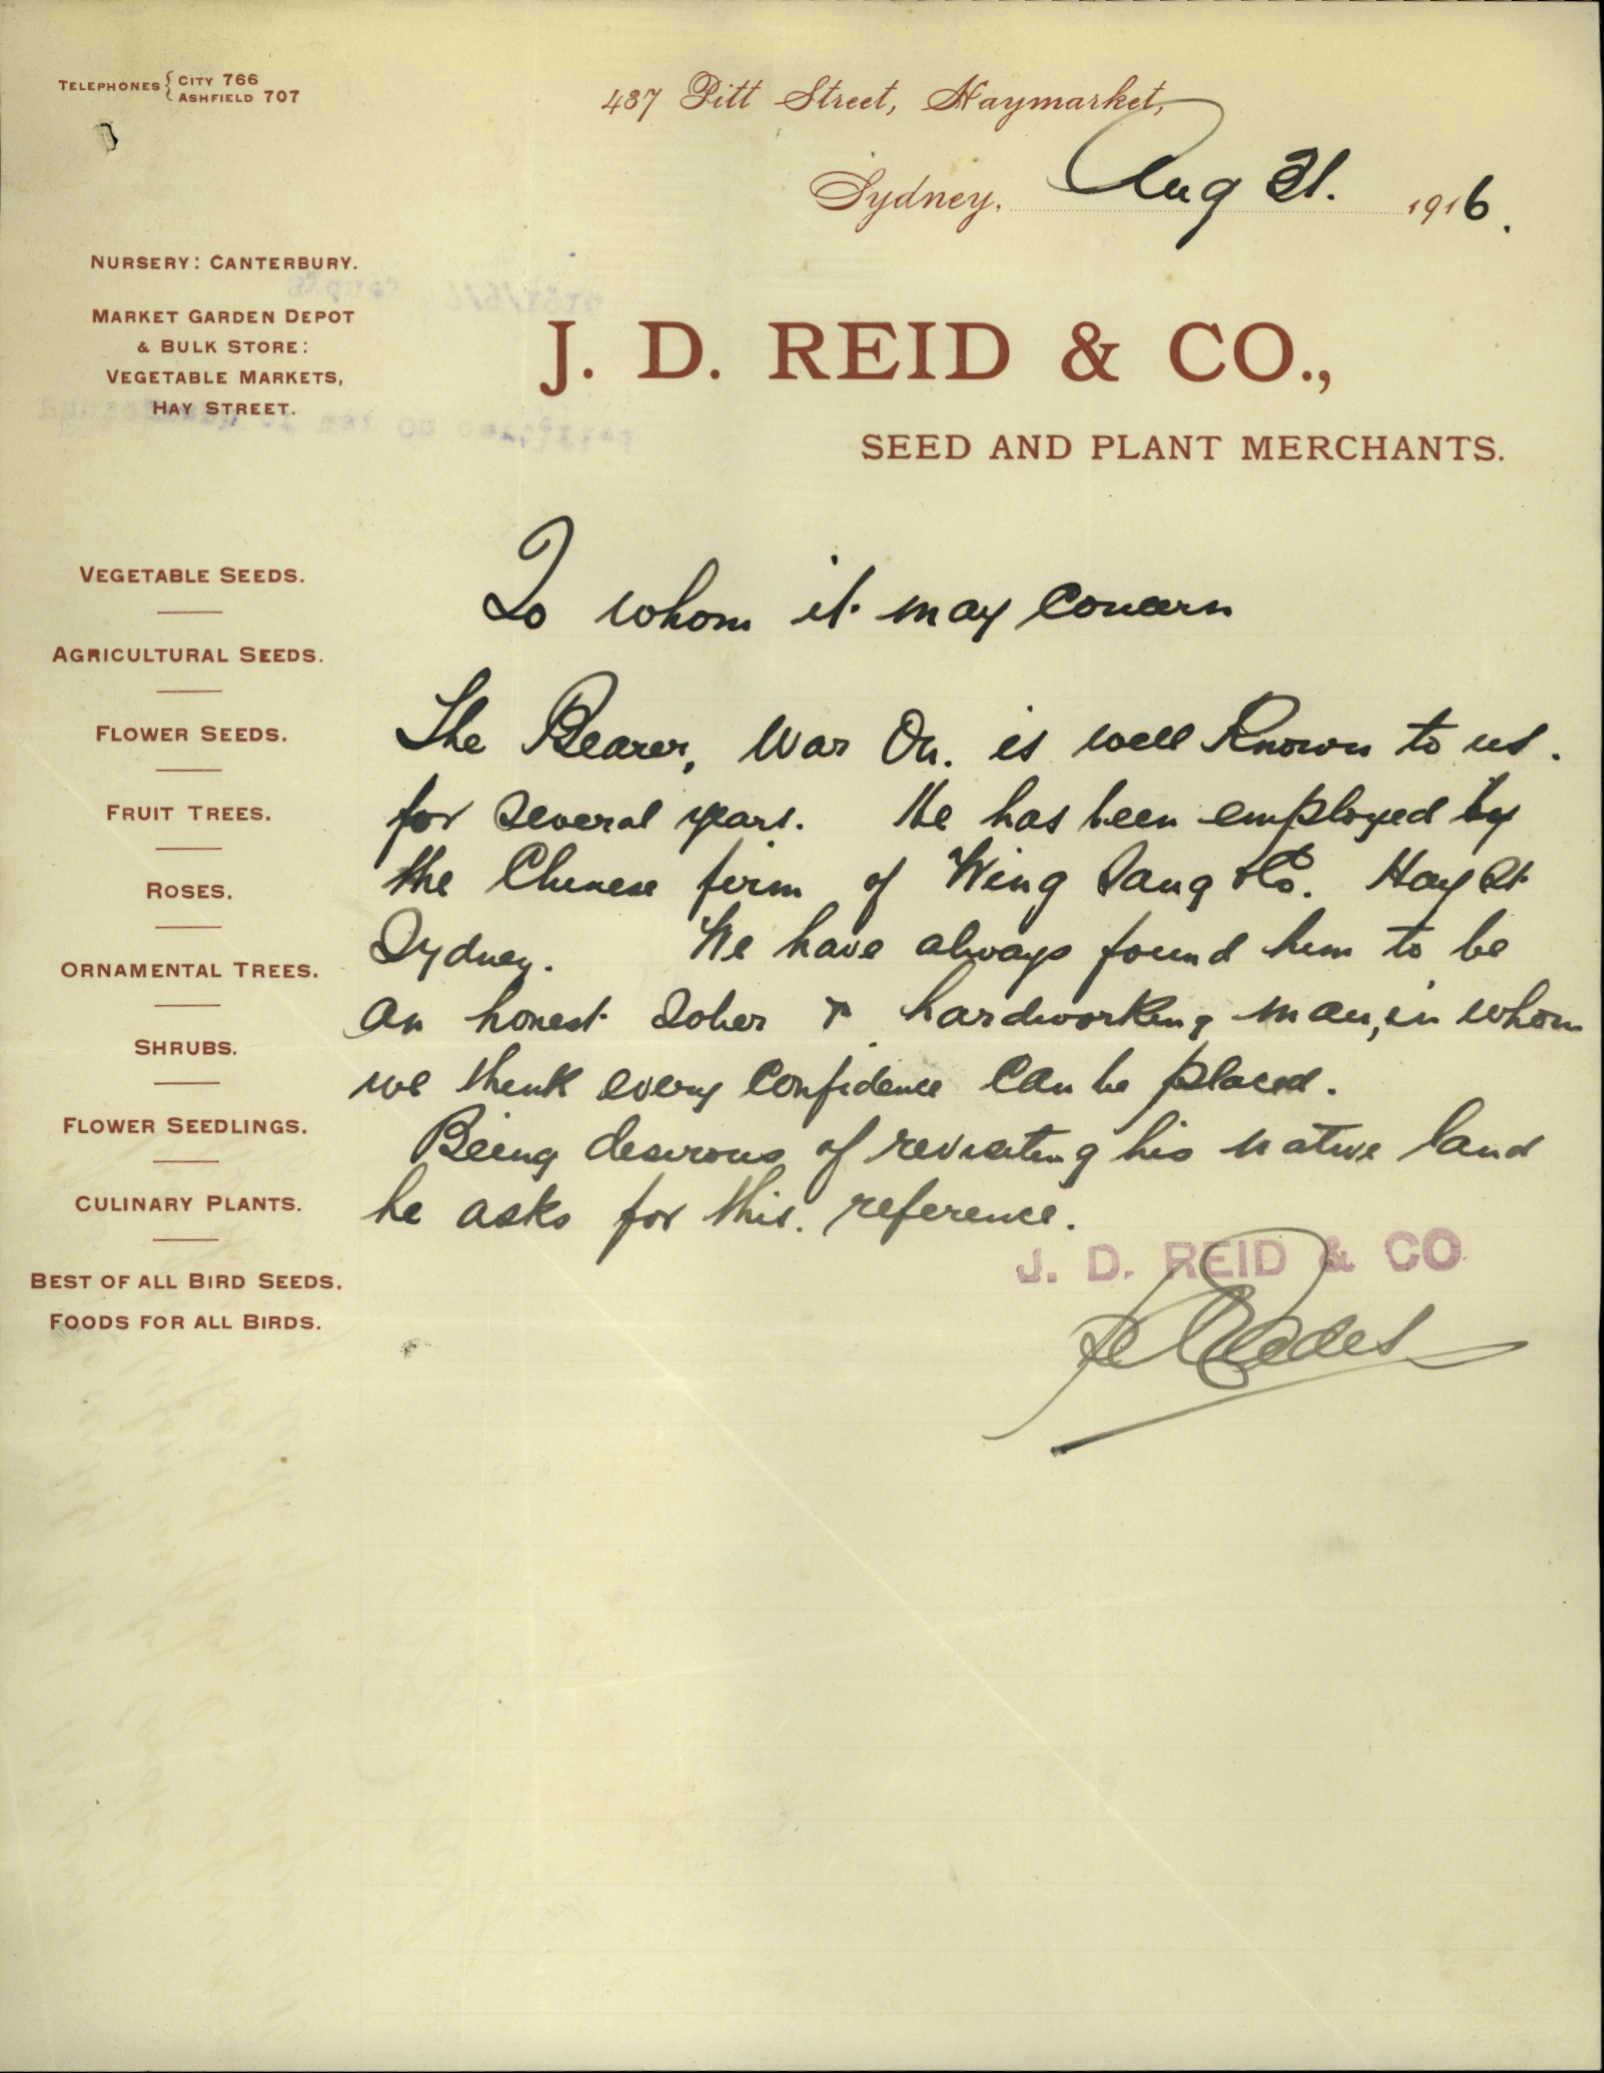 TELEPHONES { CITY 766
ASHFIELD 707
437 Pitt Street, Haymarket,
Sydney, Aug 31. 1916.
NURSERY: CANTERBURY.
MARKET GARDEN DEPOT
& BULK STORE:
VEGETABLE MARKETS,
HAY STREET.
J. D. REID & CO.,
SEED AND PLANT MERCHANTS.
VEGETABLE SEEDS.
AGRICULTURAL SEEDS.
FLOWER SEEDS.
FRUIT TREES.
ROSES.
ORNAMENTAL TREES.
SHRUBS.
FLOWER SEEDLINGS.
CULINARY PLANTS.
BEST OF ALL BIRD SEEDS.
FOODS FOR ALL BIRDS.
To whom it may concern
The Bearer, War On. is well known to us.
for several years. He has been employed by
the Chinese firm of Wing Sang & Co. Hay St
Sydney. We have always found him to be
an honest sober & hardworking man, in whom
we think every confidence can be placed.
Being desirous of revisiting his native land
he asks for this reference.
J. D. REID & CO